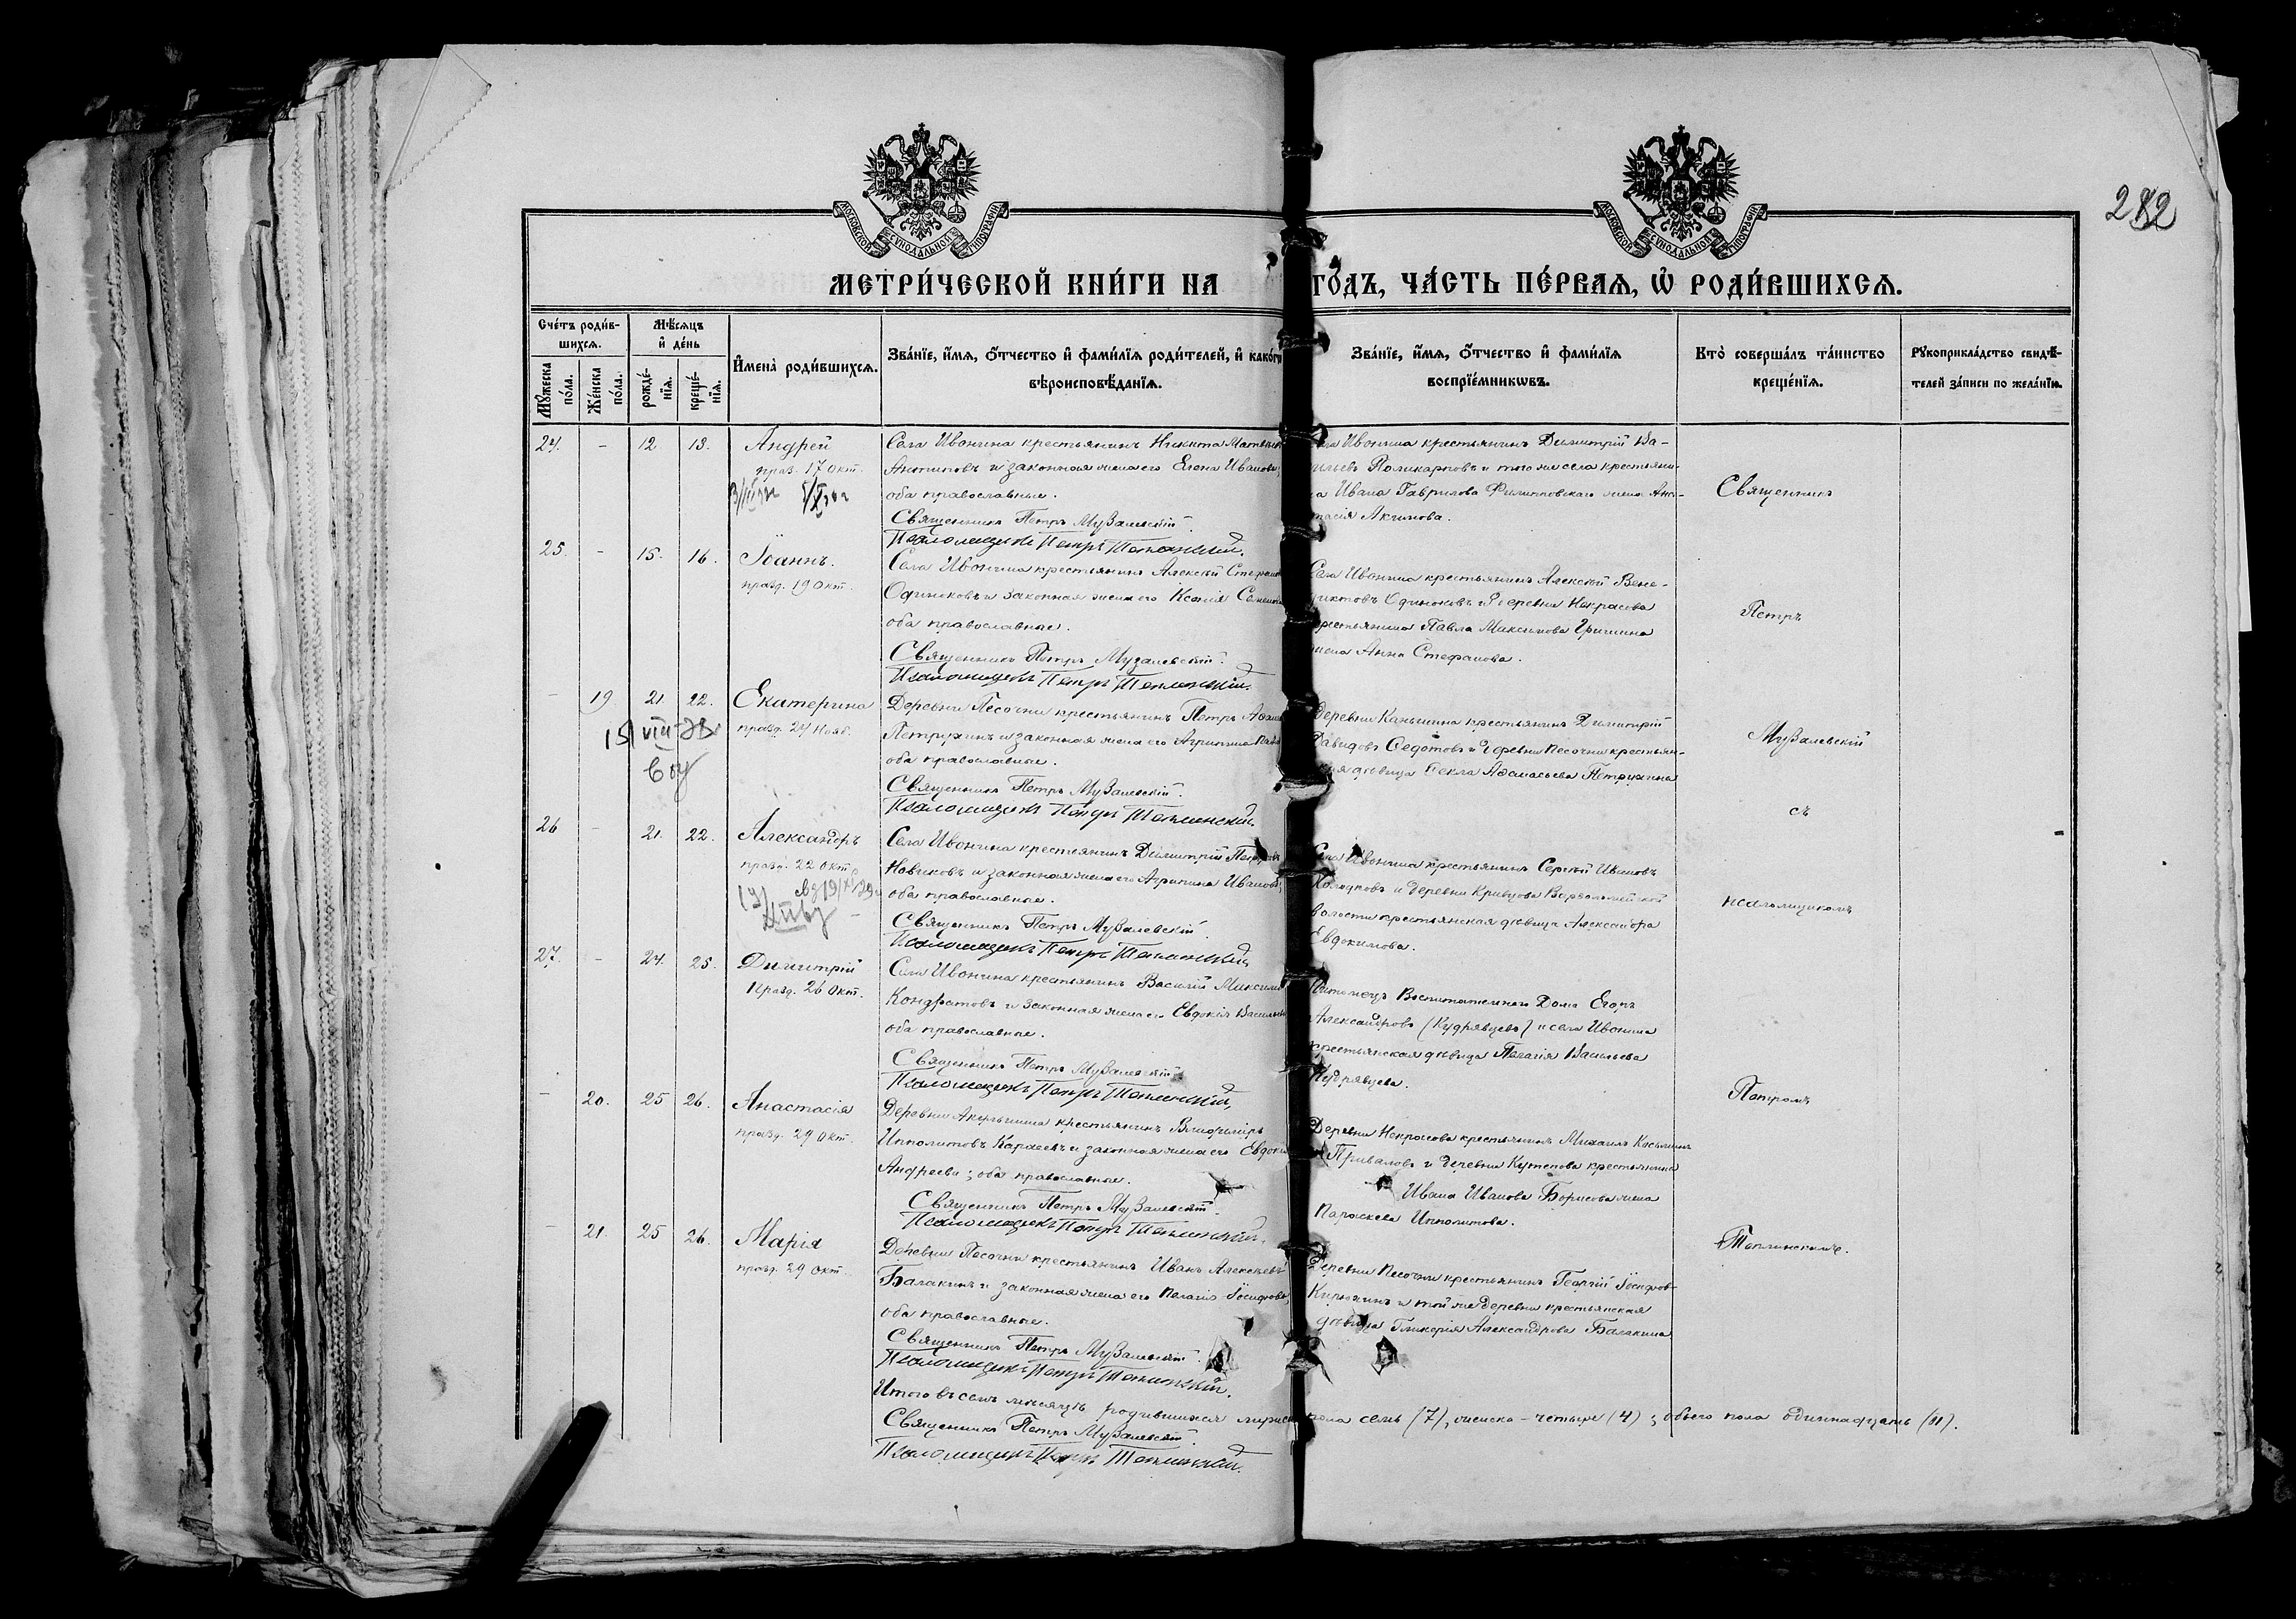 МОСКОВСКОЙ СѴНОДАЛЬНОЙ ТИПОГРАФІИ
МОСКОВСКОЙ СѴНОДАЛЬНОЙ ТИПОГРАФІИ
282
МЕТРИ́ЧЕСКОЙ КНИ́ГИ НА ГО́ДЪ, ЧА́СТЬ ПЕ́РВАЯ, Ѡ РОДИ́ВШИХСЯ.
Сче́тъ роди́в-
шихся.
Му́жеска по́ла.
Же́нска по́ла.
Мѣ́сяцъ и де́нь
рожде́-нїя.
креще́-нїя.
Имена̀ роди́вшихся.
Зва́нїе, и́мя, о́тчество и фами́лїя роди́телей, и како́гw
вѣроисповѣ́данїя.
Зва́нїе, и́мя, о́тчество и фами́лїя
воспрїе́мникwвъ.
Кто̀ соверша́лъ та́инство
креще́нїя.
Рукоприкла́дство свидѣ́-
телей за́писи по жела́нїю.
24. - 12 13. Андрей
празд. 17 Окт.
Села Ивонина крестьянинъ Никита
Антиповъ и законная жена его Елена
оба православные.
Священникъ Петръ Музалевскій.
Псаломщикъ Петръ Теплинскій.
Ивонина крестьянинъ Димитрій Ва-
Поликарповъ и того же села крестьяни-
на Ивана Гаврилова Филипповскаго жена Ана-
стасія Акимова.
25. - 15. 16. Іоаннъ.
празд. 19 Окт.
Села Ивонина крестьянинъ Алексѣй
Одиноковъ и законная жена его Ксенія
оба православные.
Священникъ Петръ Музалевскій.
Псаломщикъ Петръ Теплинскій.
Села Ивонина крестьянинъ Алексѣй Вене-
диктовъ Одиноковъ и деревни Некрасова
крестьянина Павла Максимова Гришина
жена Анна Стефанова.
- 19 21. 22. Екатерина
празд. 24 Нояб.
Деревни Песочни крестьянинъ Петръ
Петрухинъ и законная жена его Агриппина
оба православные.
Священникъ Петръ Музалевскій.
Псаломщикъ Петръ Теплинскій.
Деревни Каньшина крестьянинъ Димитрій
Давидовъ Ѳедотовъ и деревни Песочни крестьян-
ская дѣвица Ѳекла Аѳанасьева Петрухина
26 - 21. 22. Александръ
празд. 22 Окт.
Села Ивонина крестьянинъ Димитрій Петровъ
Новиковъ и законная жена его Агрипина Иванова,
оба православные.
Священникъ Петръ Музалевскій.
Псаломщикъ Петръ Теплинскій.
Села Ивонина крестьянинъ Сергѣй Ивановъ
и деревни Кривцова
волости крестьянская дѣвица Александра
Евдокимова.
27. - 24. 25. Димитрій
Празд. 26 Окт.
Села Ивонина крестьянинъ Василій
Кондратовъ и законная жена его Евдокія
оба православные.
Священникъ Петръ Музалевскій.
Псаломщикъ Петръ Теплинскій.
Питомецъ Воспитательнаго Дома Егоръ
Александровъ (Кудрявцевъ) и села Ивонина
крестьянская дѣвица Пелагія Васильева
Кудрявцева.
- 20. 25 26. Анастасія
празд. 29 Окт.
Деревни Акульшина крестьянинъ Владиміръ
Ипполитовъ Карасевъ и законная жена его
Андреева; оба православные.
Священникъ Петръ Музалевскій.
Псаломщикъ Петръ Теплинскій.
Деревни Некрасова крестьянинъ Михаилъ Косьминъ
Приваловъ и деревни Кутепова крестьянина
Ивана Иванова Борисова жена
Параскева Ипполитова.
- 21. 25 26. Марія
празд. 29 Окт.
Деревни Песочни крестьянинъ Иванъ Алексѣевъ
Балакинъ и законная жена его Пелагія Іосифова,
оба православные.
Священникъ Петръ Музалевскій.
Псаломщикъ Петръ Теплинскій.
Деревни Песочни крестьянинъ Георгій Іосифовъ
Кирюхинъ и той же деревни крестьянская
дѣвица Гликерія Александрова Балакина
Священникъ
Петръ
Музалевскій
съ
псаломщикомъ
Петромъ
Теплинскимъ.
Итого въ семъ мѣсяцѣ родившихся мужска пола семь (7), женска - четыре (4); обоего пола одиннадцать (11).
Священникъ Петръ Музалевскій.
Псаломщикъ Петръ Теплинскій.